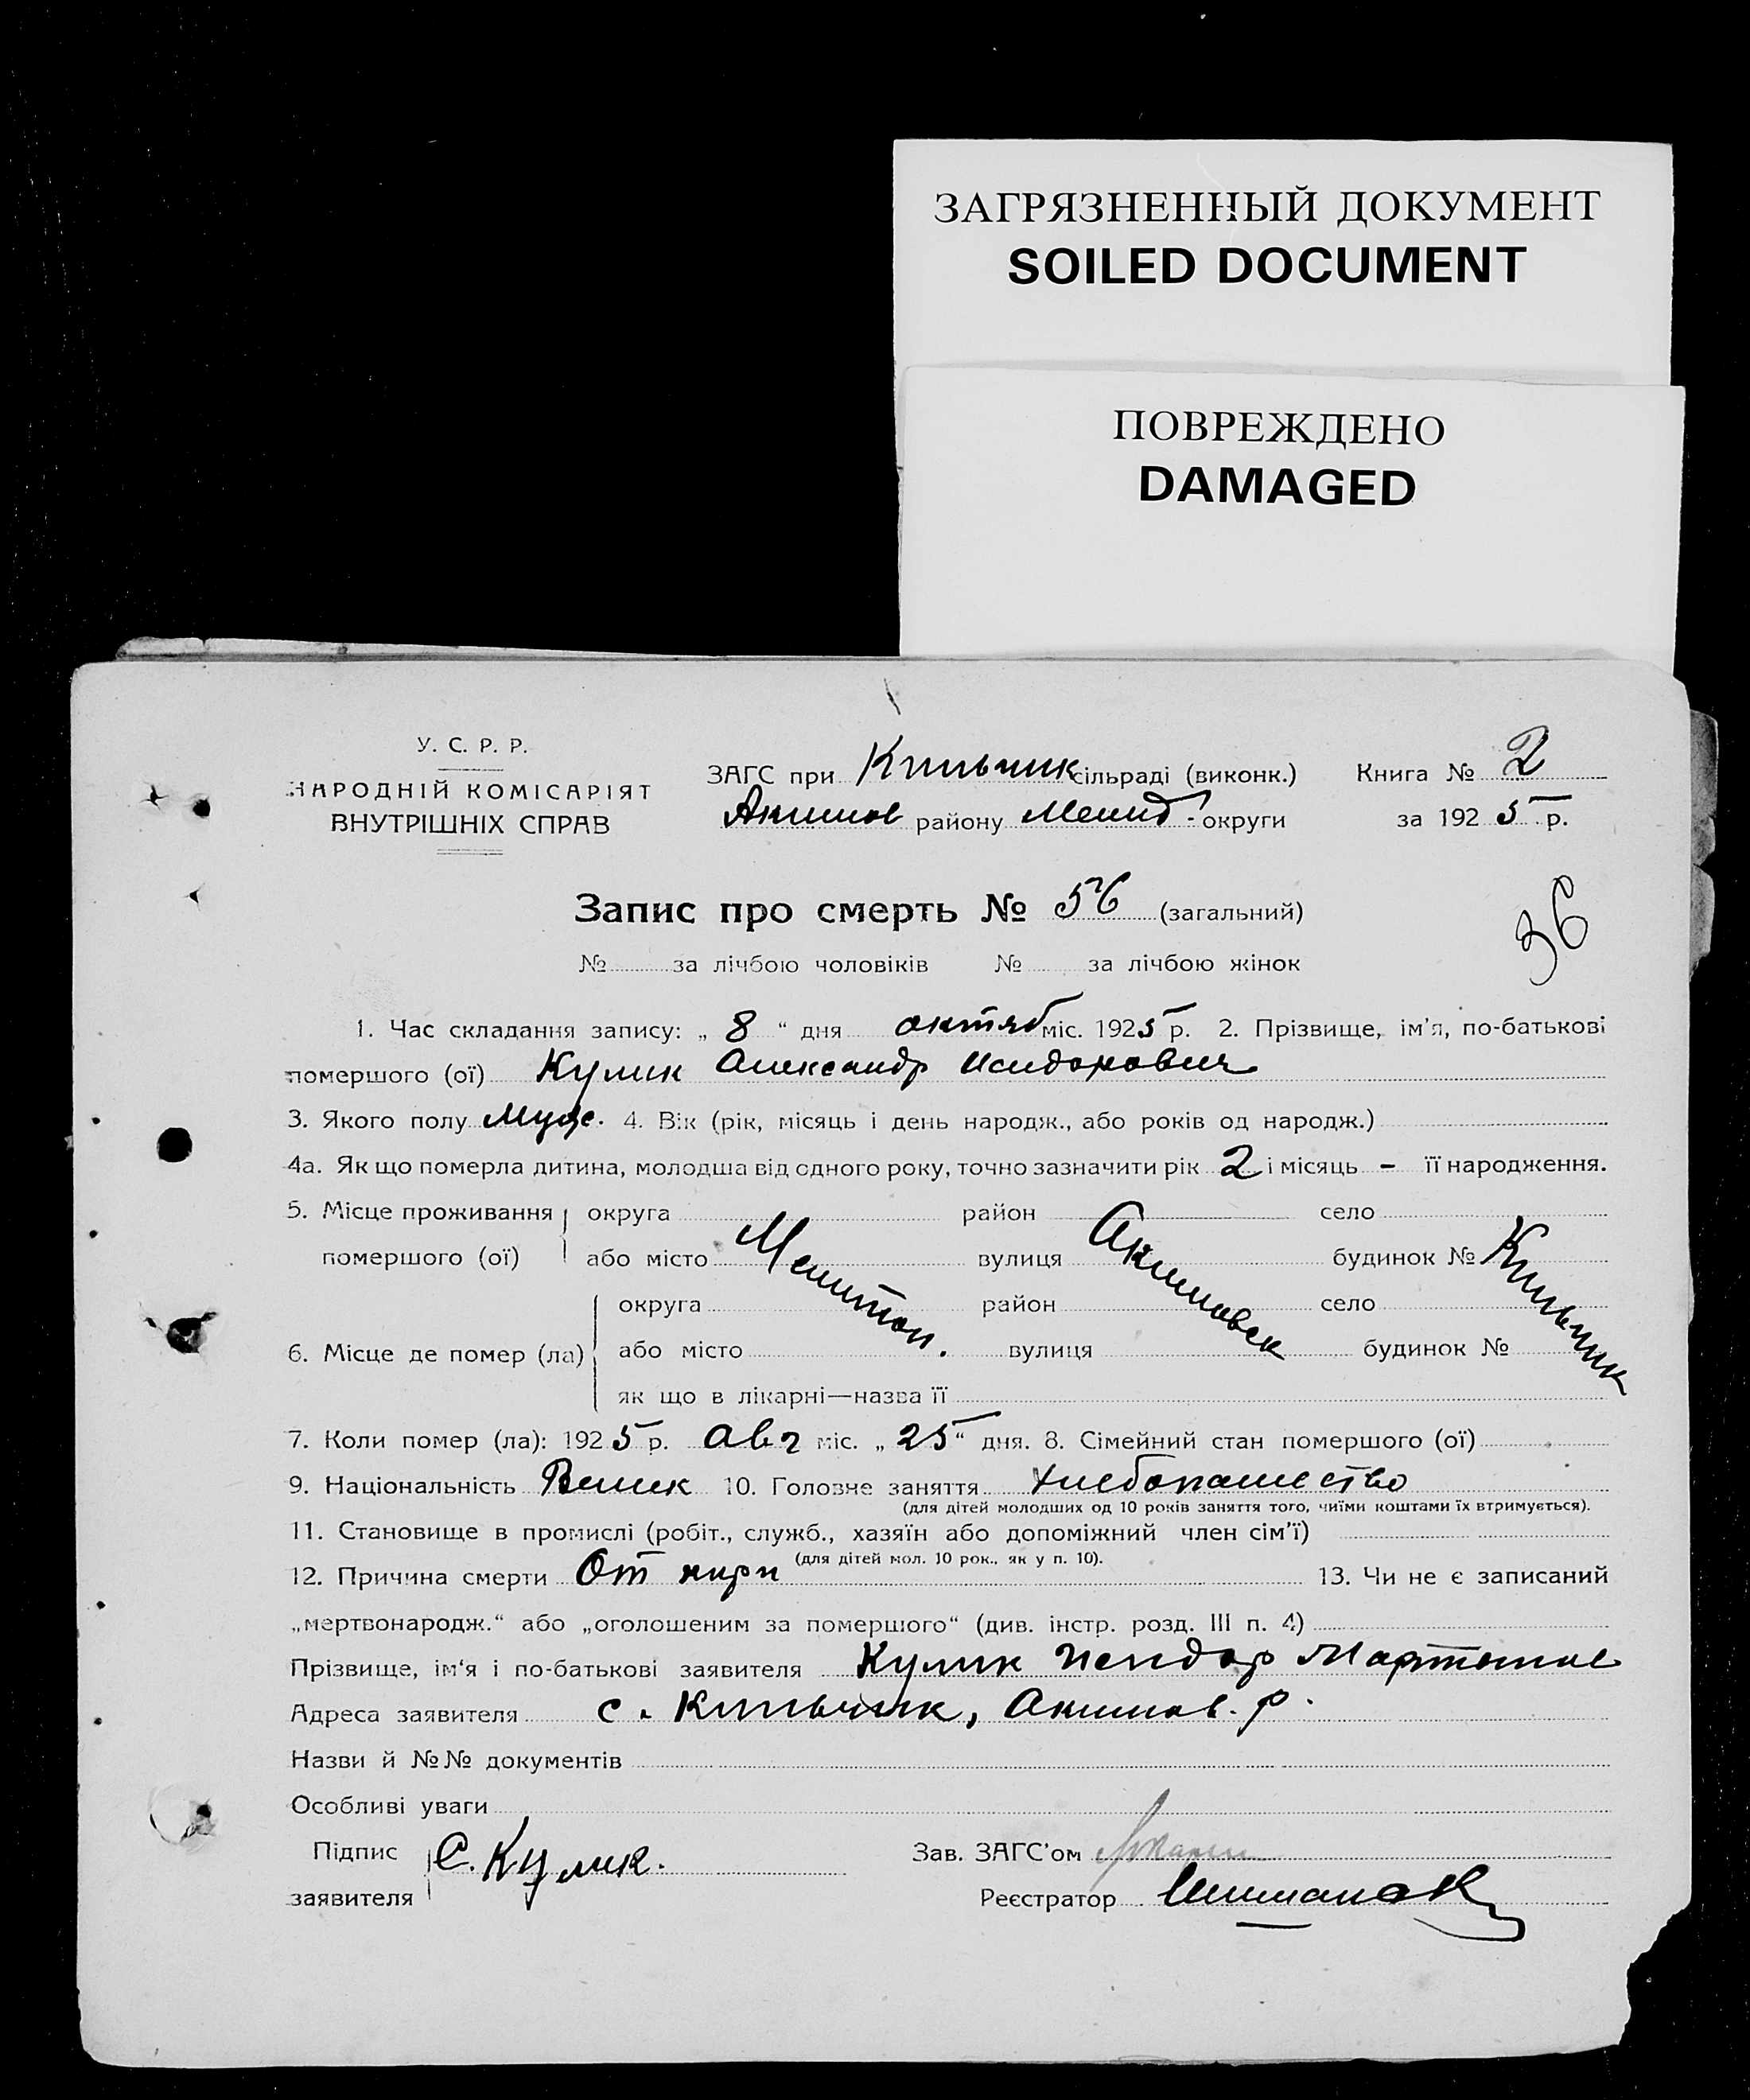 ЗАГРЯЗНЕННЫЙ ДОКУМЕНТ
SOILED DOCUMENT
ПОВРЕЖДЕНО
DAMAGED
У. С. Р. Р.
НАРОДНІЙ КОМІСАРІЯТ
ВНУТРІШНІХ СПРАВ
ЗАГС при Кильчик сільраді (виконк.) Книга № 2
Акимов району Мелит - округи за 1925 р.
Запис про смерть № 56 (загальний)
36
№ за лічбою чоловіків № за лічбою жінок
1. Час складання запису: „ 8 “ дня октяб міс. 1925 р. 2. Прізвище, ім'я, по-батькові
помершого (ої) Кулик Александр Исидорович
3. Якого полу Муж. 4. Вік (рік, місяць і день народж., або років од народж.)
4а. Як що померла дитина, молодша від одного року, точно зазначити рік 2 і місяць - її народження.
5. Місце проживання округа район село
помершого (ої) або місто Мелитоп. вулиця Акимовск будинок № Кильчик
округа район село
6. Місце де помер (ла) або місто вулиця будинок №
як що в лікарні—назва її
7. Коли помер (ла): 1925 р. Авг міс. „ 25 “ дня. 8. Сімейний стан помершого (ої)
9. Національність 10. Головне заняття Хлебопашество
(для дітей молодших од 10 років заняття того, чиїми коштами їх втримується).
11. Становище в промислі (робіт., служб., хазяїн або допоміжний член сім'ї)
(для дітей мол. 10 рок., як у п. 10).
12. Причина смерти От 13. Чи не є записаний
„мертвонародж.“ або „оголошеним за помершого“ (див. інстр. розд. III п. 4)
Прізвище, ім'я і по-батькові заявителя Кулик Исидор Мартынов
Адреса заявителя с. Кильчик, Акимов. р.
Назви й №№ документів
Особливі уваги
Підпис С. Кулик. Зав. ЗАГС'ом
заявителя Реєстратор